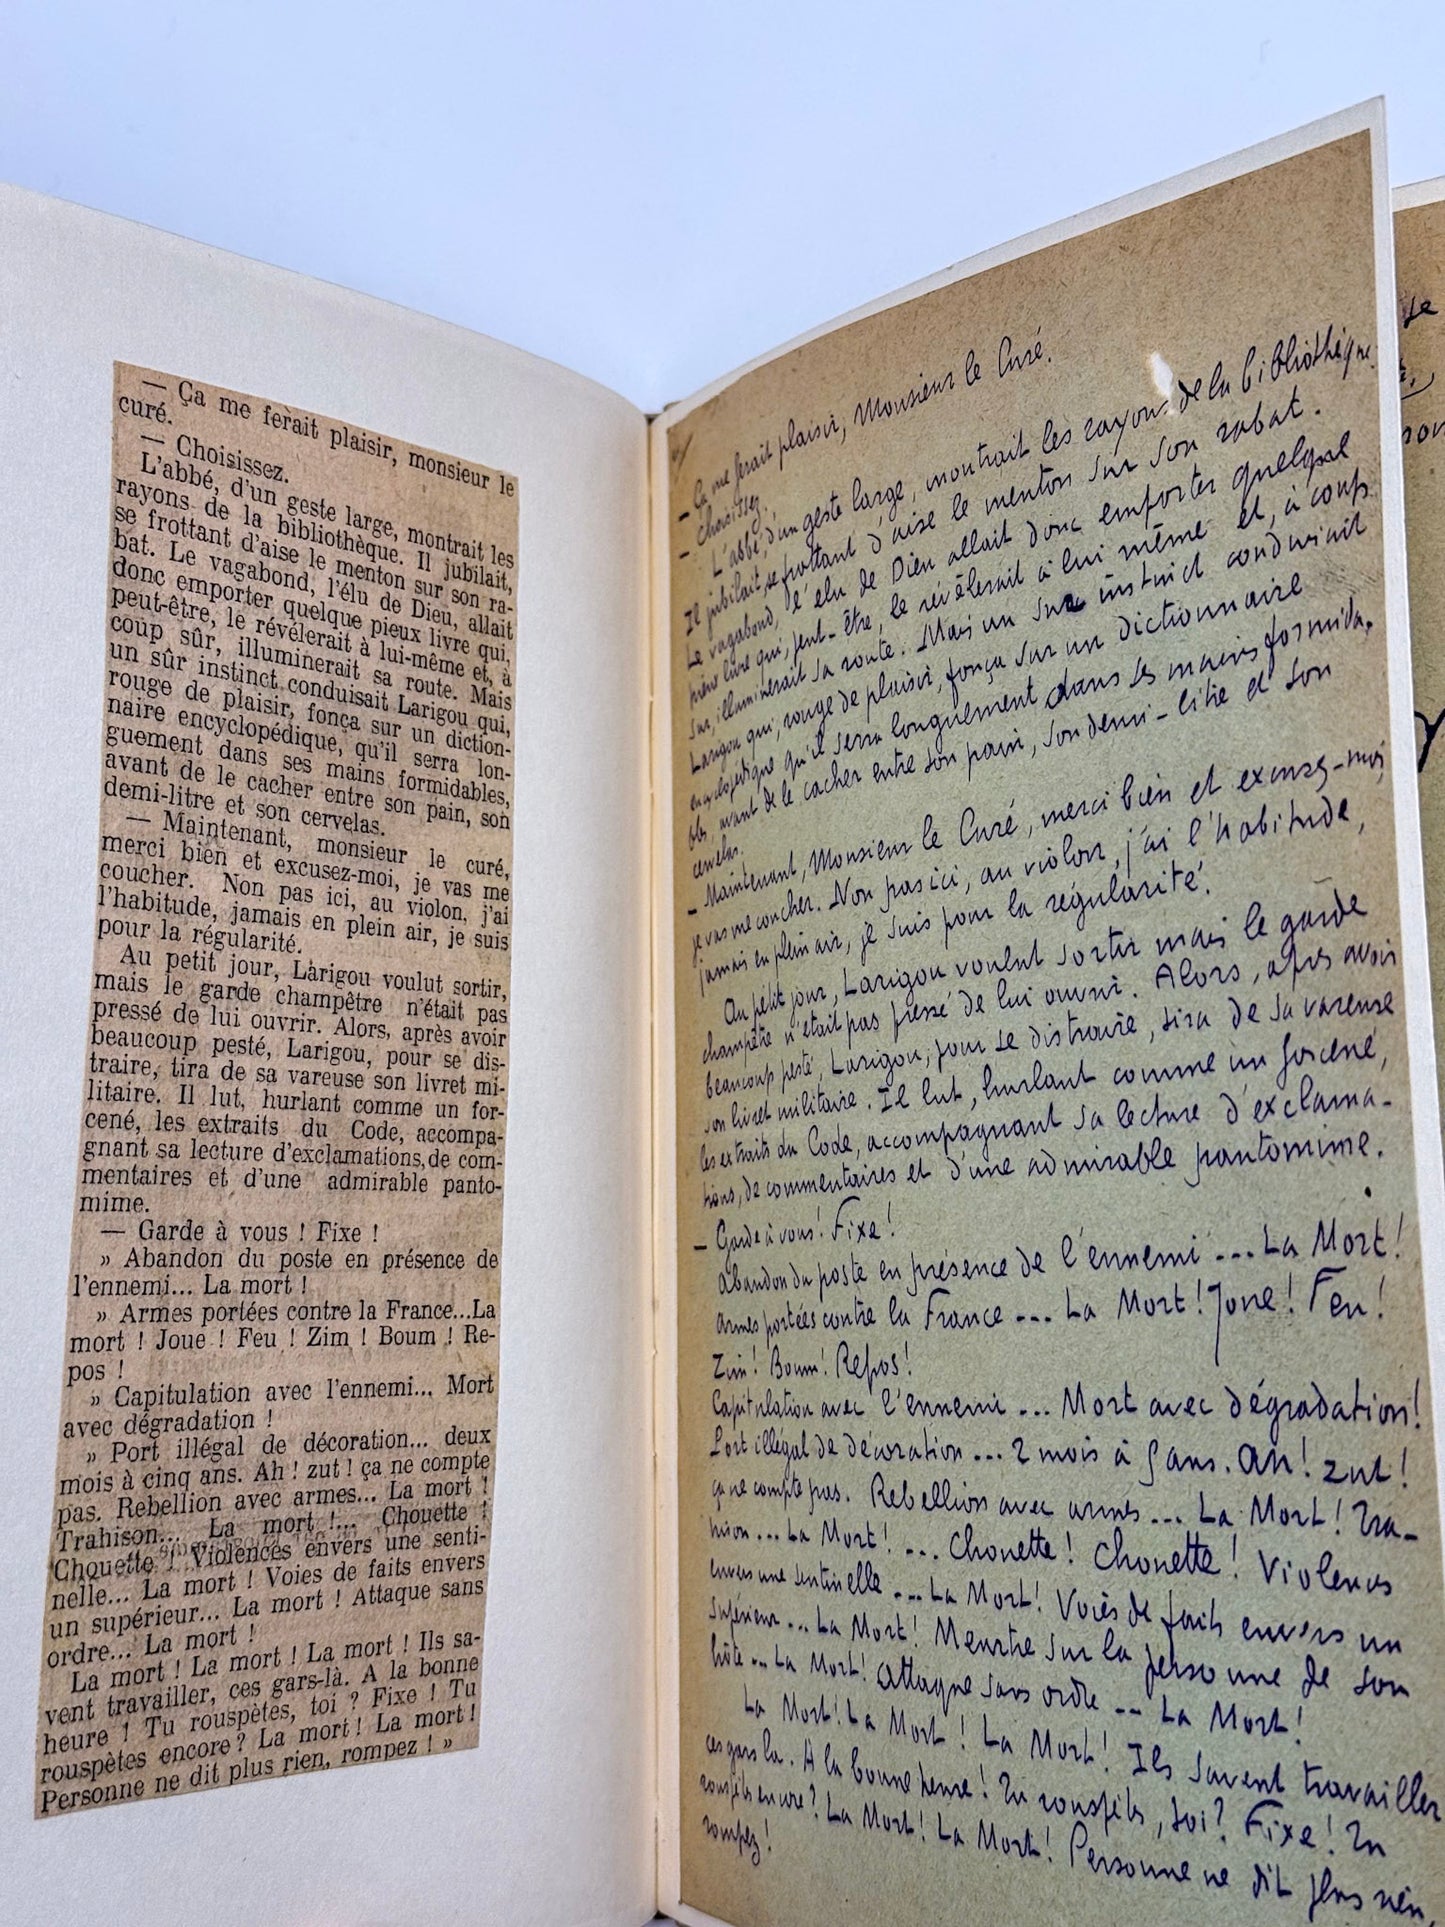 — Ça me ferait plaisir, monsieur le
curé.
— Choisissez.
L'abbé, d'un geste large, montrait les
rayons de la bibliothèque. Il jubilait,
se frottant d'aise le menton sur son ra-
bat. Le vagabond, l'élu de Dieu, allait
donc emporter quelque pieux livre qui,
peut-être, le révélerait à lui-même et, à
coup sûr, illuminerait sa route. Mais
un sûr instinct conduisait Larigou qui,
rouge de plaisir, fonça sur un diction-
naire encyclopédique, qu'il serra lon-
guement dans ses mains formidables,
avant de le cacher entre son pain, son
demi-litre et son cervelas.
— Maintenant, monsieur le curé,
merci bien et excusez-moi, je vas me
coucher. Non pas ici, au violon, j'ai
l'habitude, jamais en plein air, je suis
pour la régularité.
Au petit jour, Larigou voulut sortir,
mais le garde champêtre n'était pas
pressé de lui ouvrir. Alors, après avoir
beaucoup pesté, Larigou, pour se dis-
traire, tira de sa vareuse son livret mi-
litaire. Il lut, hurlant comme un for-
cené, les extraits du Code, accompa-
gnant sa lecture d'exclamations, de com-
mentaires et d'une admirable panto-
mime.
— Garde à vous ! Fixe !
» Abandon du poste en présence de
l'ennemi... La mort !
» Armes portées contre la France...La
mort ! Joue ! Feu ! Zim ! Boum ! Re-
pos !
» Capitulation avec l'ennemi... Mort
avec dégradation !
» Port illégal de décoration... deux
mois à cinq ans. Ah ! zut ! ça ne compte
pas. Rebellion avec armes... La mort !
Trahison... La mort !... Chouette !
Chouette ! Violences envers une senti-
nelle... La mort ! Voies de faits envers
un supérieur... La mort ! Attaque sans
ordre... La mort !
La mort ! La mort ! La mort ! Ils sa-
vent travailler, ces gars-là. A la bonne
heure ! Tu rouspètes, toi ? Fixe ! Tu
rouspètes encore ? La mort ! La mort !
Personne ne dit plus rien, rompez ! »
— Ça me ferait plaisir, Monsieur le Curé.
— Choisissez.
L'abbé, d'un geste large, montrait les rayons de la bibliothèque.
Il jubilait, se frottant d'aise le menton sur son rabat.
Le vagabond, l'élu de Dieu allait donc emporter quelque
pieux livre qui, peut-être, le révèlerait à lui même et, à coup
sur, illuminerait sa route. Mais un sur instinct conduisait
Larigou qui, rouge de plaisir, fonça sur un dictionnaire
encyclopédique qu'il serra longuement dans ses mains formida-
bles, avant de le cacher entre son pain, son demi-litre et son
cervelas.
— Maintenant, Monsieur le Curé, merci bien et excusez-moi,
je vas me coucher. Non pas ici, au violon, j'ai l'habitude,
jamais en plein air, je suis pour la régularité.
Au petit jour, Larigou voulut sortir mais le garde
champêtre n'était pas pressé de lui ouvrir. Alors, après avoir
beaucoup pesté, Larigou, pour se distraire, tira de sa vareuse
son livret militaire. Il lut, hurlant comme un forcené,
les extraits du Code, accompagnant sa lecture d'exclama-
tions, de commentaires et d'une admirable pantomime.
— Garde à vous ! Fixe !
Abandon du poste en présence de l'ennemi ... La Mort !
Armes portées contre la France ... La Mort ! Joue ! Feu !
Zim ! Boum ! Repos !
Capitulation avec l'ennemi ... Mort avec dégradation !
Port illégal de décoration ... 2 mois à 5 ans. Ah ! zut !
ça ne compte pas. Rebellion avec armes ... La Mort ! Tra-
hison ... La Mort ! ... Chouette ! Chouette ! Violences
envers une sentinelle ... La Mort ! Voies de faits envers un
supérieur ... La Mort ! Meurtre sur la personne de son
hôte ... La Mort ! Attaque sans ordre ... La Mort !
La Mort ! La Mort ! La Mort ! Ils savent travailler
ces gars là. A la bonne heure ! Tu rouspètes, toi ? Fixe ! Tu
rouspètes encore ? La Mort ! La Mort ! Personne ne dit plus rien,
rompez !